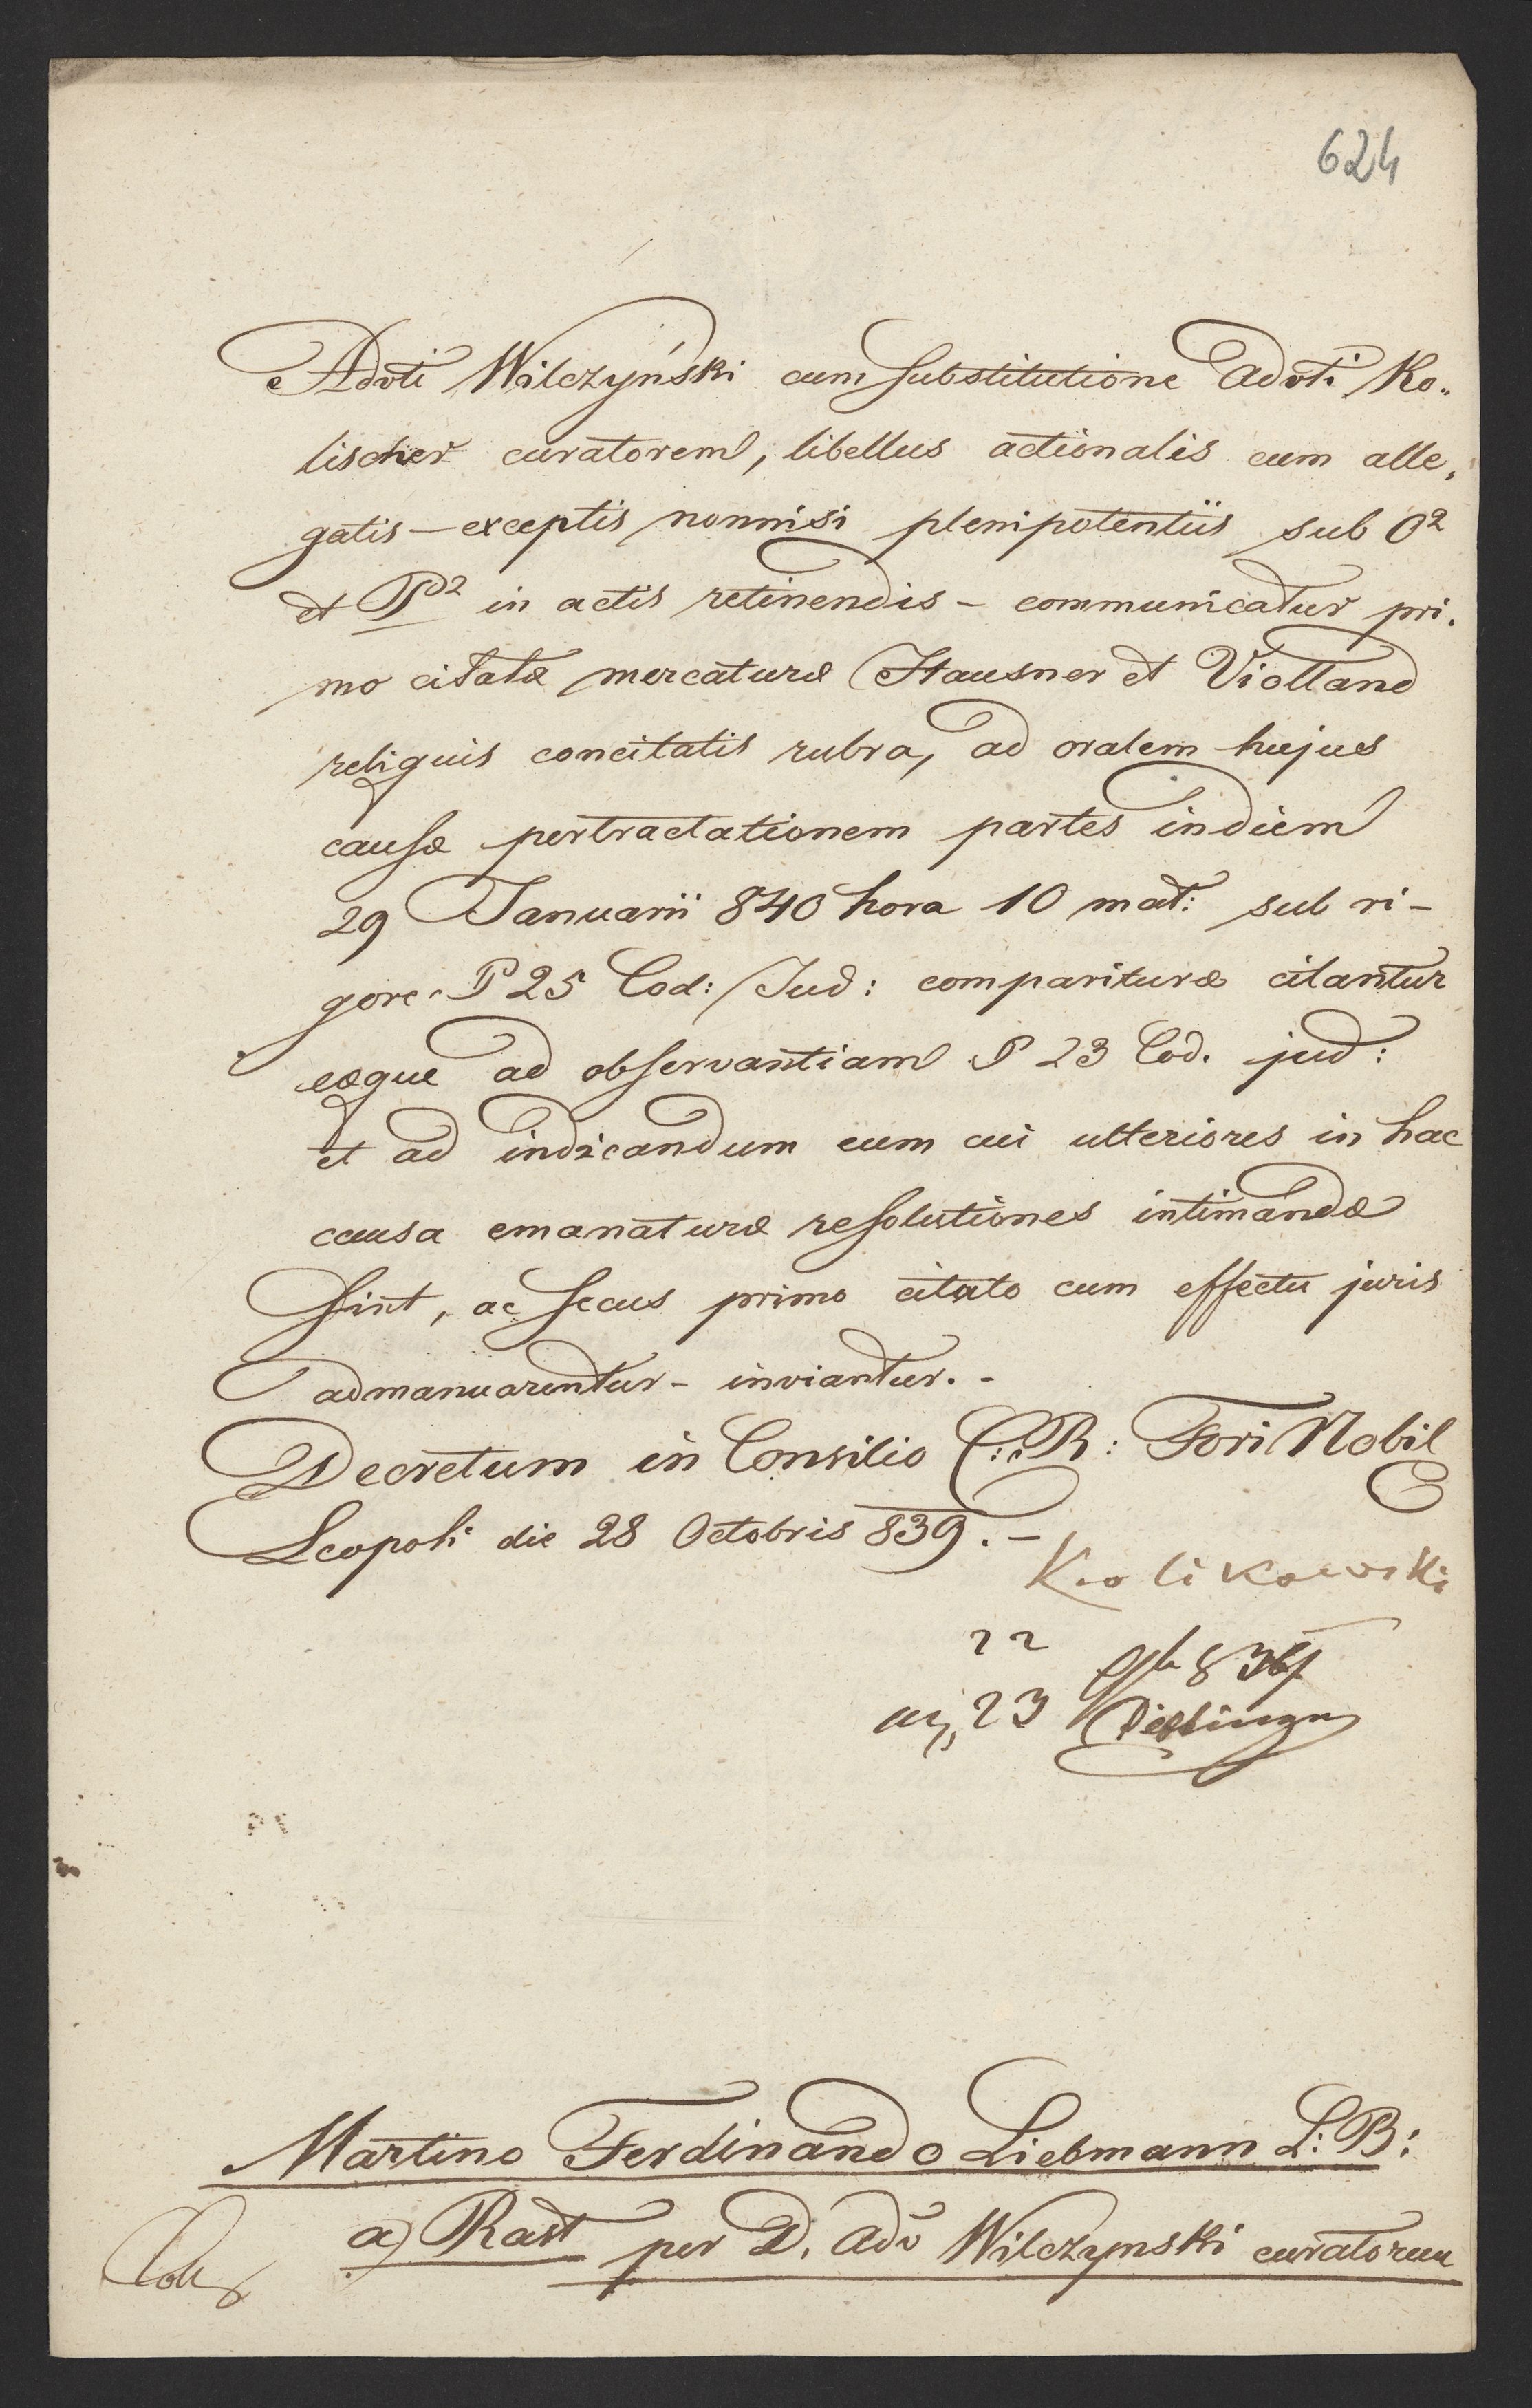 624
Advti Wilczyński cum substitutione Advti Ko„
lischer curatorem, libellus actionalis cum alle„
gatis – exceptis nonnisi plenipotentiis sub O²
et P² in actis retinendis – communicatur pri„
mo citatæ mercaturæ Hausner et Violland
reliquis concitatis rubra, ad oralem hujus
causæ pertractationem partes in diem
29 Januarii 840 hora 10 mat: sub ri-
gore § 25 Cod: Jud: compariturae citantur
eæque ad observantiam § 23 Cod. jud:
et ad indicandum eum cui ulteriores in hac
causa emanaturæ resolutiones intimandæ
sint, ac secus primo citato cum effectu juris
admanuarentur – inviantur. -
Decretum in Consilio C: R: Fori Nobil
Leopoli die 28 Octobris 839. –
Krolikowski
22
23
Martino Ferdinando Liebmann L: B:
a) Rast per D. Adv Wilczynski curatorem